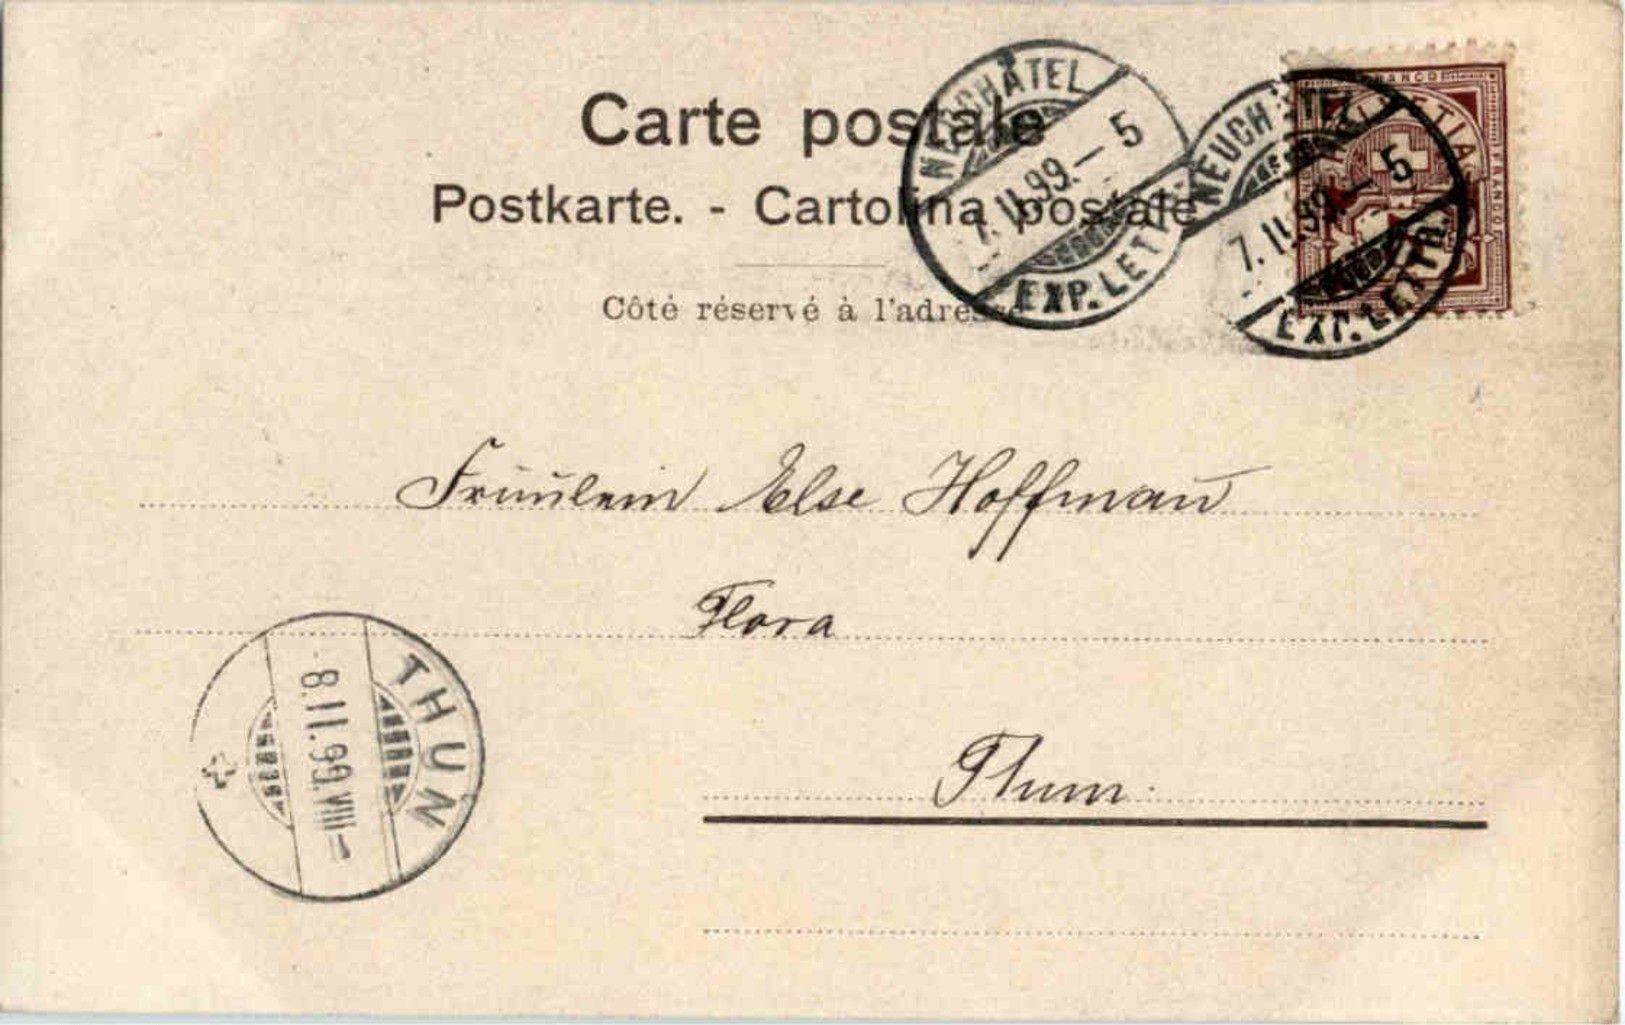 Carte postale
Postkarte. - Cartolina postale
Côté réservé à l'adresse
NEUCHÂTEL
7. II. 99. - 5
EXP. LETTR.
NEUCHÂTEL
7. II. 99. - 5
EXP. LETTR.
FRANCO
HELVETIA
FRANCO
Fräulein Else Hoffmann
Flora
Thun.
THUN
8. II. 99. VIII -